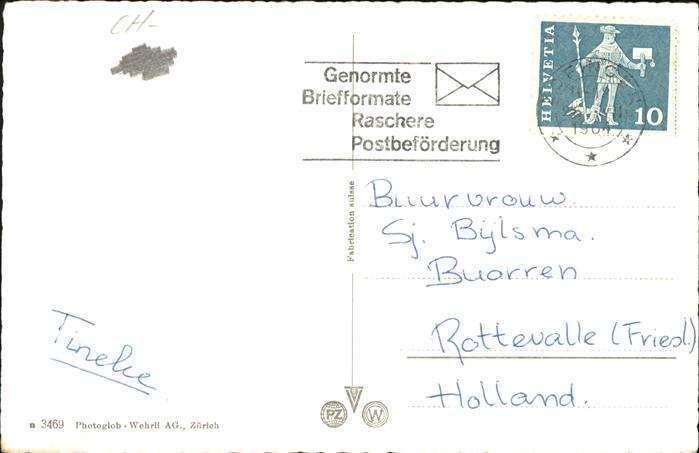 CH-
Genormte
Briefformate
Raschere
Postbeförderung
HELVETIA
10
Fabrication suisse
Buurvrouw.
Sj. Bijlsma.
Buorren
Rottevalle (Friesl.)
Holland.
Tineke
n 3469 Photoglob - Wehrli AG., Zürich
PZ
W